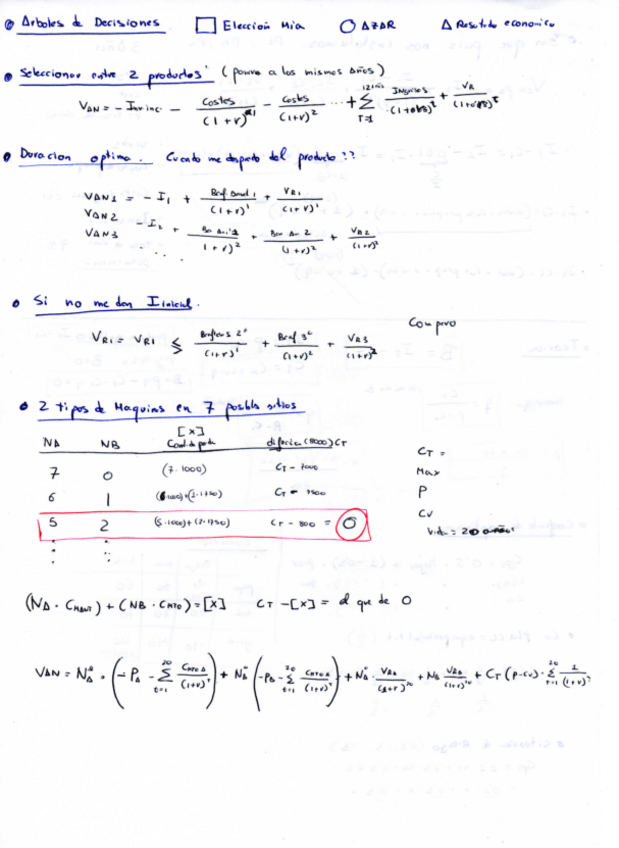 Arboles de Decisiones □ Elección Mia ○ AZAR △ Resultado economico
Seleccionar entre 2 productos (pauvo a los mismos años)
VAN = - Inv inc. - Costes/(1+r)^1 - Costes/(1+r)^2 ... + Σ T=1 Ingresos + VR
Duracion optima. Cuando me despido del producto??
VAN1 = - I1 + /(1+r)^1 + VR1/(1+r)^1
VAN2 - I2 + /(1+r)^2 + Ben An 2/(1+r)^2 + VR2/(1+r)^2
VAN3 ....
Si no me dan I inicial.
VR1 = VR1 ≤ /(1+r)^1 + Benf 3º/(1+r)^2 + VR3/(1+r)^2 Compro
2 tipos de Maquinas en 7 posibles sitios
[X]
NA NB diferencia (8000) CT
7 0 (7·1000) CT - 7000
6 1 (6·1000)+(2·1750) CT - 7500
5 2 (5·1000)+(2·1750) CT - 800 = 0
⋮ ⋮
CT =
Max
P
CV
Vida = 20 años
(NA · CMANT) + (NB · CMTO) = [X] CT - [X] = el que de 0
VAN = NA* · (-PA - Σ t=1 20 CMTOA/(1+r)^t) + NB* (-PB - Σ t=1 20 /(1+r)^t) + NA* · VRA/(1+r)^20 + NB VRB/(1+r)^20 + CT (P-CV) · Σ t=1 20 1/(1+r)^t